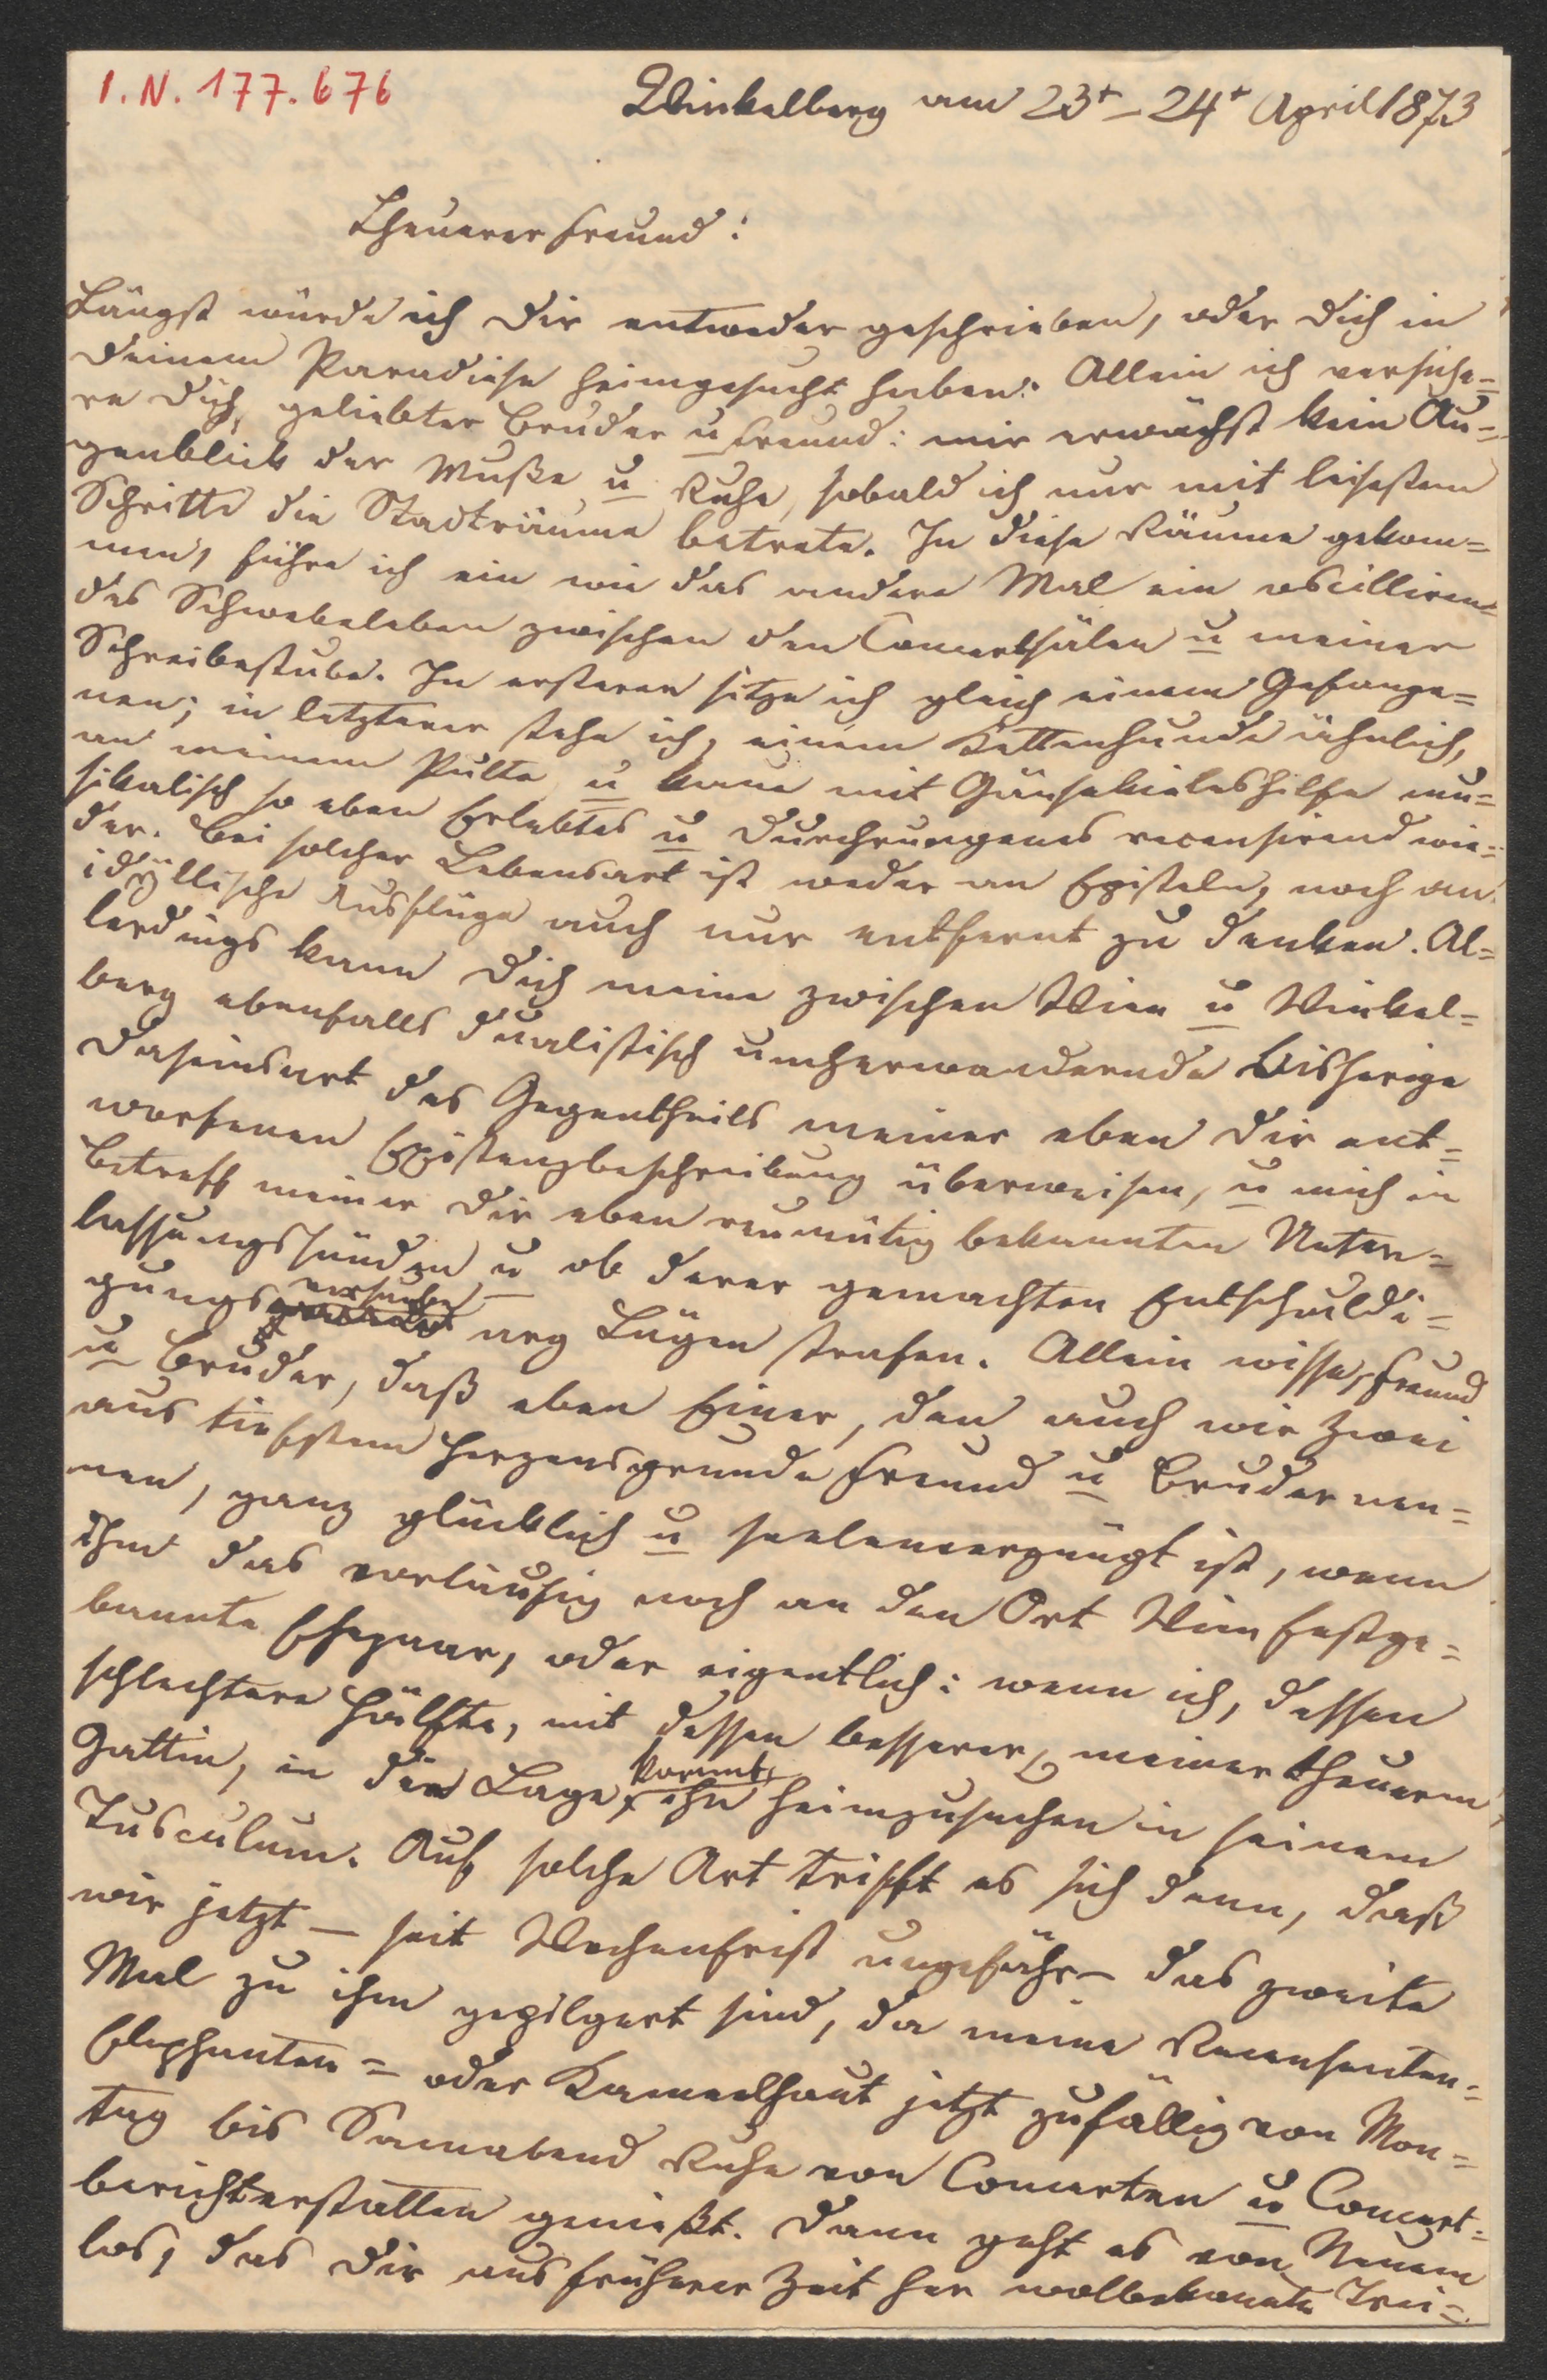 I. N. 177.676
Winkelberg am 23t – 24t April 1873
Theuerer Freund:
Längst würde ich Dir entweder geschrieben, oder Dich in
Deinem Paradiese heimgesucht haben. Allein ich versiche=
re Dich, geliebter Bruder u Freund: mir erwächst kein Au=
genblick der Muße u Ruhe, sobald ich nur mit leisestem
Schritte die Stadträume betrete. In diese Räume gekom=
men, führe ich ein wie das andere Mal ein oscilliren=
des Schwebeleben zwischen den Concertsälen u meiner
Schreibestube. In ersteren sitze ich gleich einem Gefange=
nen; in letzterer stehe ich, einem Kettenhunde ähnlich,
an meinem Pulte u kaue mit Gänsekieleshilfe mu=
sikalisch so eben Erlebtes u Durchrungenes recensirend wie=
der. Bei solcher Lebensart ist weder an Episteln, noch an
idyllische Ausflüge auch nur entfernt zu denken. Al=
lerdings kann Dich meine zwischen Wien u Winkel=
berg ebenfalls dualistisch umherwandernde bisherige
Daseinsart des Gegentheils meiner eben Dir ent=
worfenen Existenzbeschreibung überweisen, u mich in
Betreff meiner Dir eben reumütig bekannten Unter=
lassungssünden u ob derer gemachten Entschuldi=
gungsversuche arg Lügen strafen. Allein wisse, Freund
u Bruder, daß eben Einer, den auch wir Zwei
aus tiefstem Herzensgrunde Freund u Bruder nen=
nen, ganz glücklich u seelenvergnügt ist, wenn
ihm das vorläufig noch an den Ort Wien festge=
bannte Ehepaar, oder eigentlich: wenn ich, dessen
schlechtere Hälfte, mit dessen besserer, meiner theuern
Gattin, in die Lage kommt, ihn heimzusuchen in seinem
Tusculum. Auf solche Art trifft es sich denn, daß
wir jetzt – seit Wochenfrist ungefähr – das zweite
Mal zu ihm gepilgert sind, da meine Recensenten=
Elephanten= oder Kameelhaut jetzt zufällig von Mon=
tag bis Sonnabend Ruhe von Concerten u Concert=
berichterstatten genießt. Dann geht es von Neuem
los, das Dir aus früherer Zeit her wolbekannte Trei=